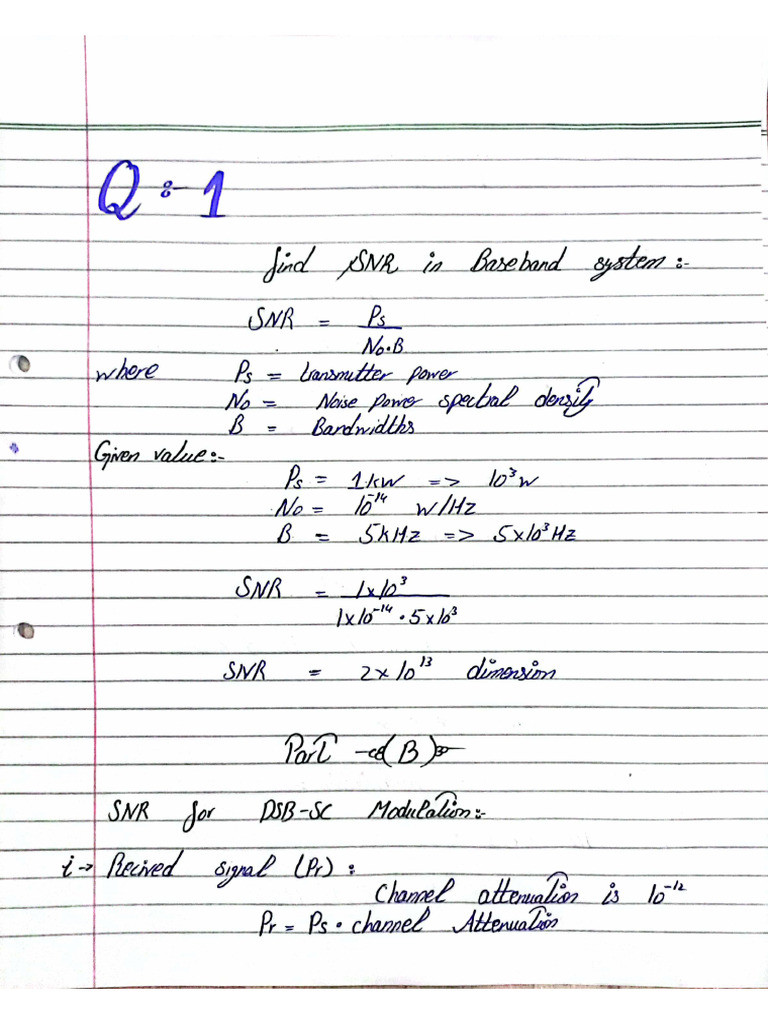 Q:- 1
find SNR in Baseband system:-
SNR = Ps
No.B
where Ps = transmitter power
No = Noise power spectral density
B = Bandwidths
Given value:-
Ps = 1kw => 10³w
No = 10⁻¹⁴ w/Hz
B = 5kHz => 5x10³Hz
SNR = 1x10³
1x10⁻¹⁴ . 5x10³
SNR = 2x10¹³ dimension
Part (B)
SNR for DSB-SC Modulation:-
i→ Recived signal (Pr):
Channel attenuation is 10⁻¹²
Pr = Ps . channel Attenuation